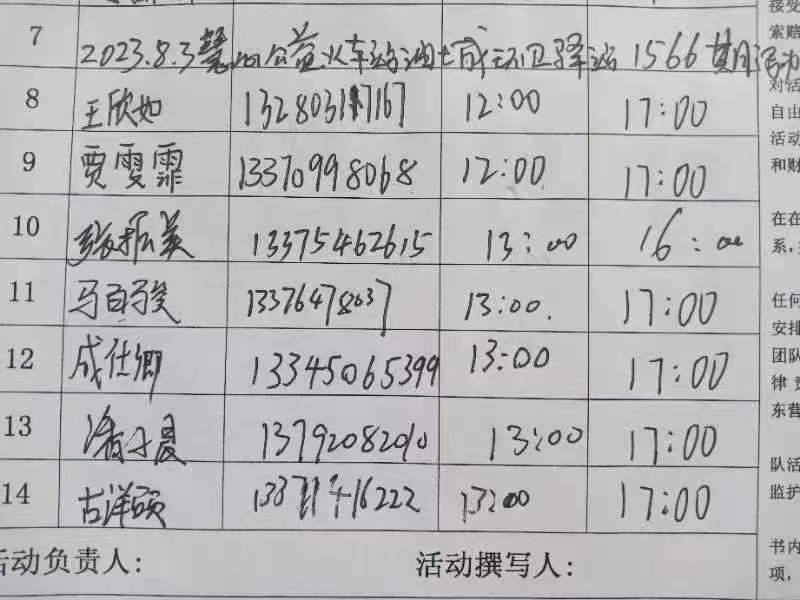 接受
索赔
7 2023.8.3 公益火车站 1566期活动
对活
8 王欣如 13280317167 12:00 17:00
自由
活动
9 贾雯霏 13370998068 12:00 17:00
和财
10 张振英 13375462615 13:00 16:00
在在
系,
11 马百骏 13376478037 13:00. 17:00
任何
安排
12 成仕卿 13345065399 13:00 17:00
团队
律责
东营
13 潘子晨 13792082010 13:00 17:00
队活
监护
14 古洋硕 16222 13:00 17:00
书内
活动负责人: 活动撰写人:
项,